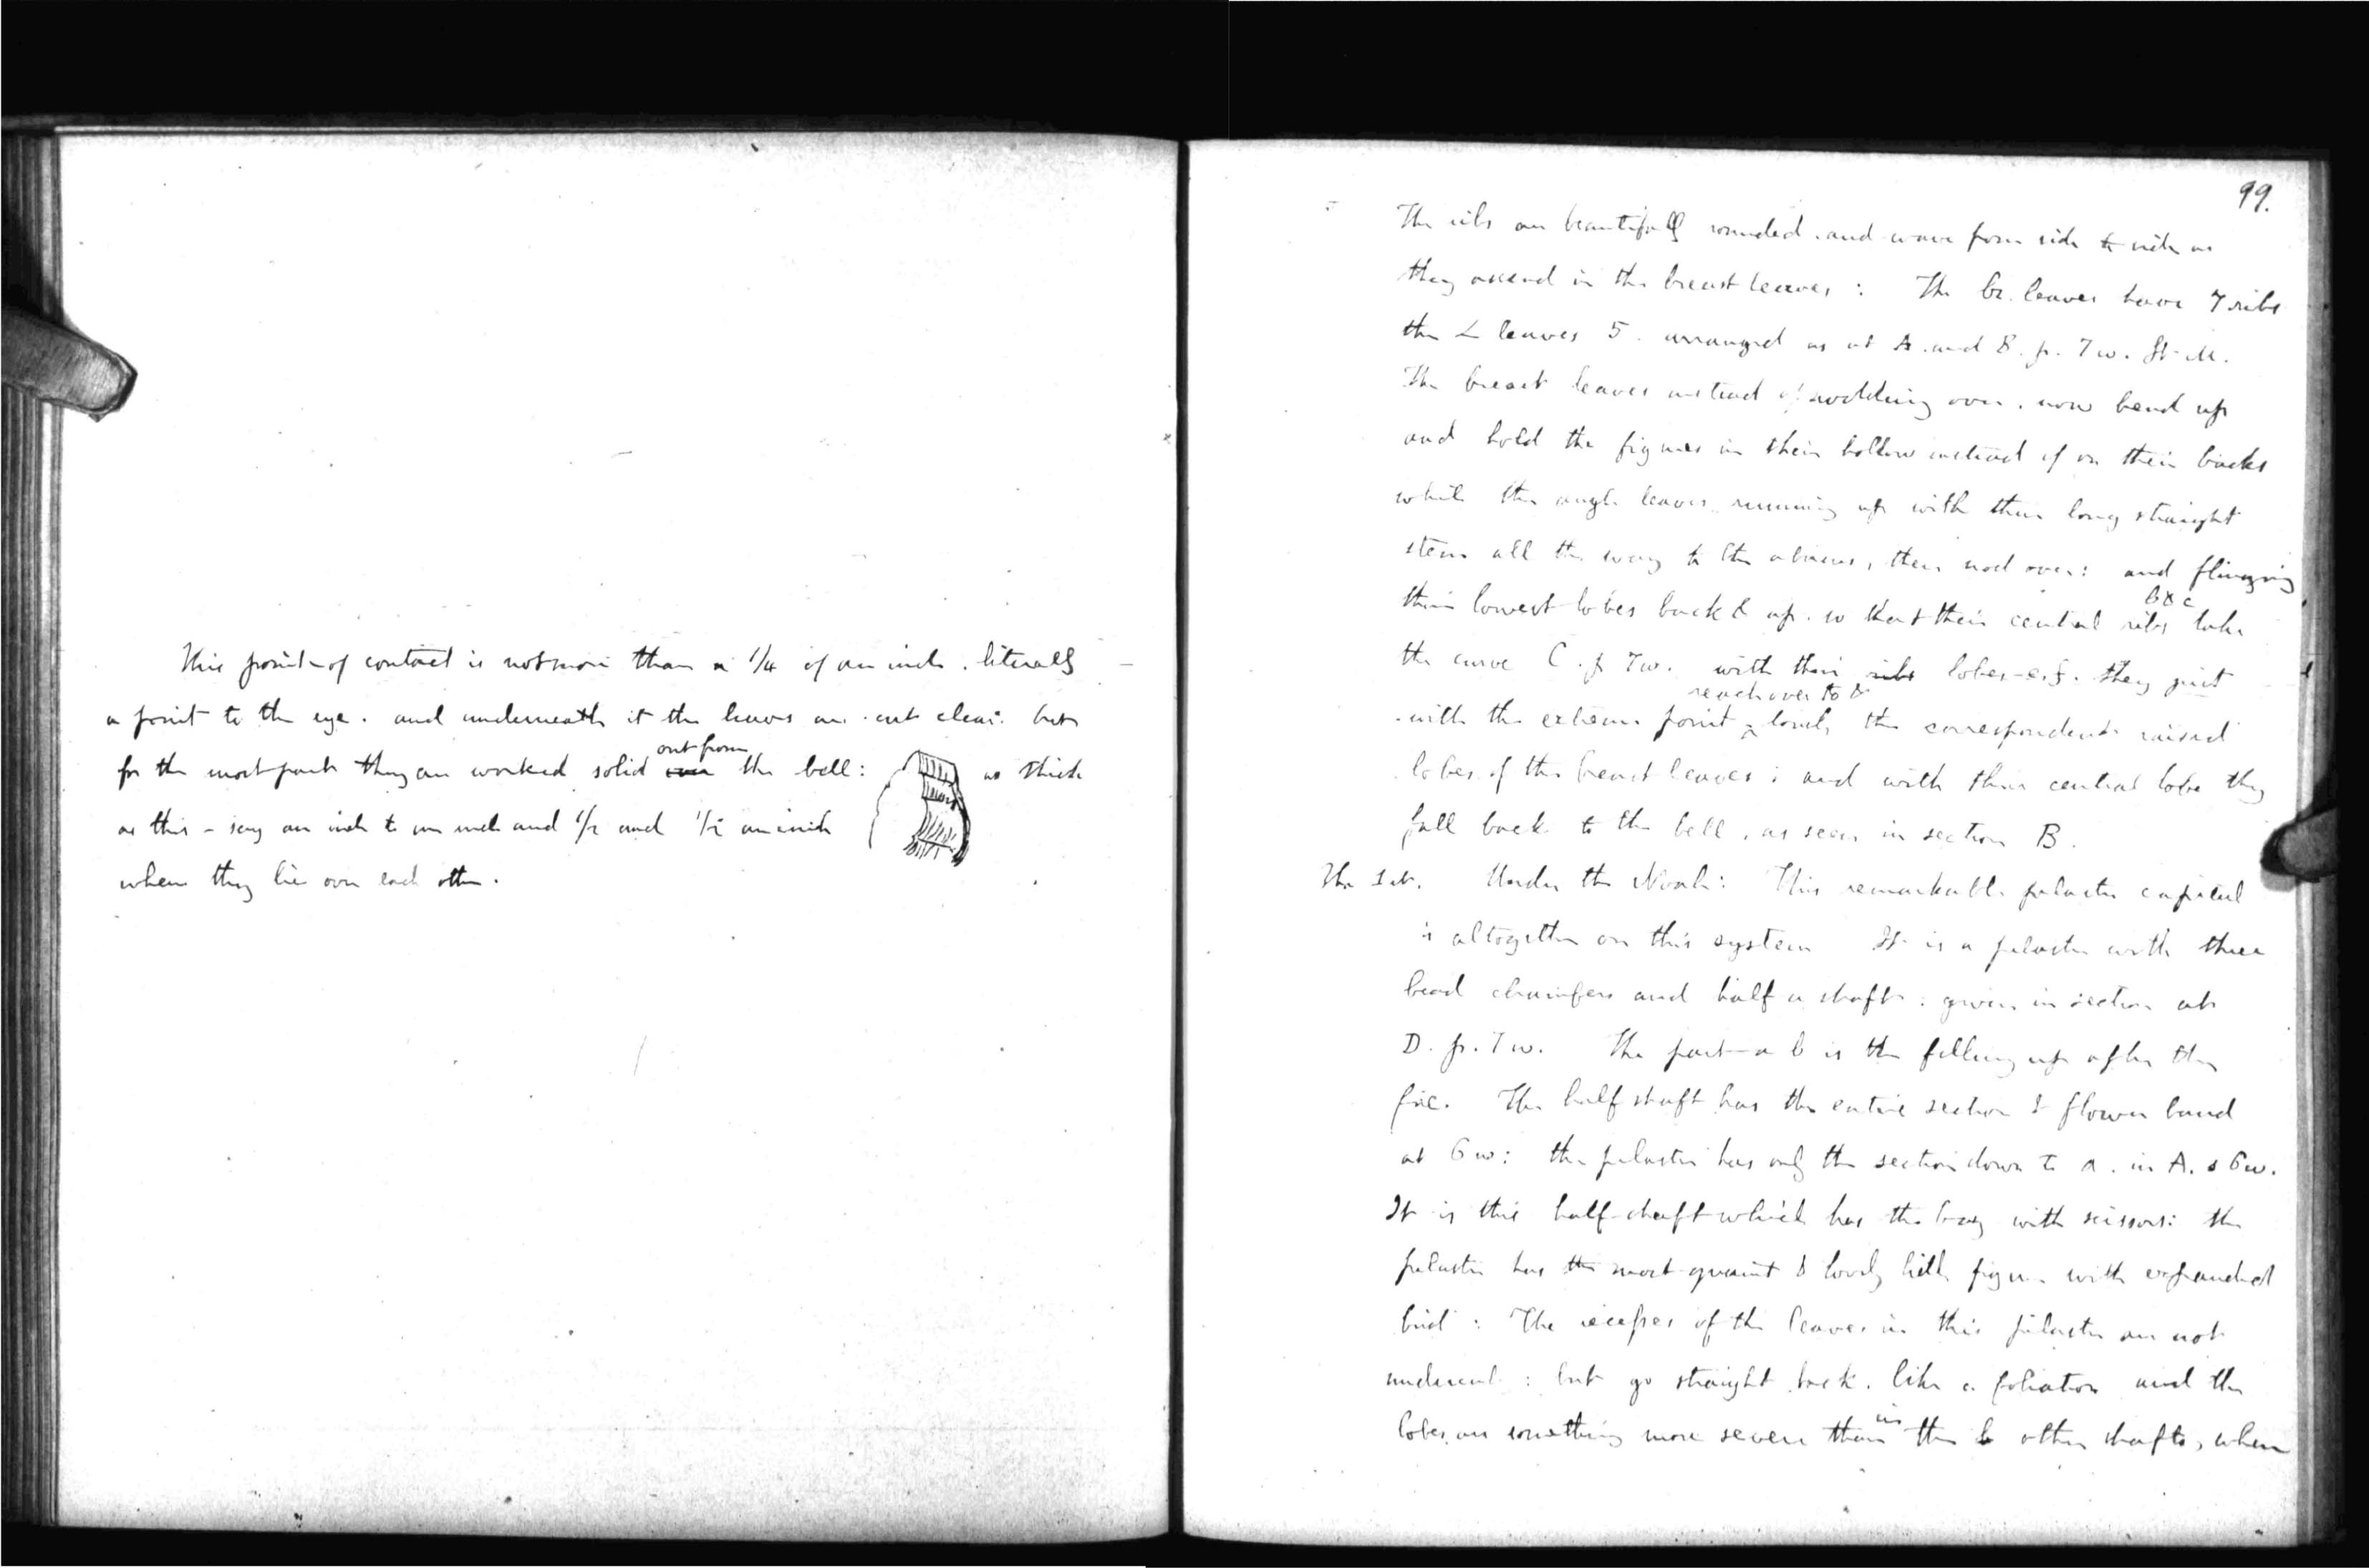 This point of contact is not more than a 1/4 of an inch. literally
a point to the eye. and underneath it the leaves are cut clear. but
out from
for the most part they are worked solid over the bell: as thick
as this - say an inch to an inch and 1/2 and 1/2 an inch
where they lie over each other.
99.
The ribs are beautifully rounded. and wave from side to side as
they ascend in the breast leaves: The br. leaves have 7 ribs
the L leaves 5. arranged as at A. and B. p. 7w. St. M.
The breast leaves instead of nodding over, now bend up
and hold the figures in their hollow instead of on their backs
while the angle leaves running up with their long straight
stem all the way to the abacus, then nod over: and flinging
b & c
their lowest lobes back & up. so that their central ribs take
the curve C. p 7w. with their ribs lobes e.f. they just
reach over to &
with the extreme point ^ touch the correspondent raised
lobes of the breast leaves: and with their central lobe they
fall back to the bell, as seen in section B.
The 1st. Under the Noah: This remarkable pilaster capital
is altogether on this system It is a pilaster with three
bead chamfers and half a shaft: given in section at
D. p. 7w. The part a b is the filling up after the
fire. The half shaft has the entire section & flower band
at 6w: the pilaster has only the section down to a. in A. 6w.
It is this half-shaft which has the boy with scissors: the
pilaster has the most quaint & lovely little figure with expanded
bird: The recesses of the leaves in this pilaster are not
undercut: but go straight back. like a foliation and the
in
lobes are something more severe than the b other shafts, when